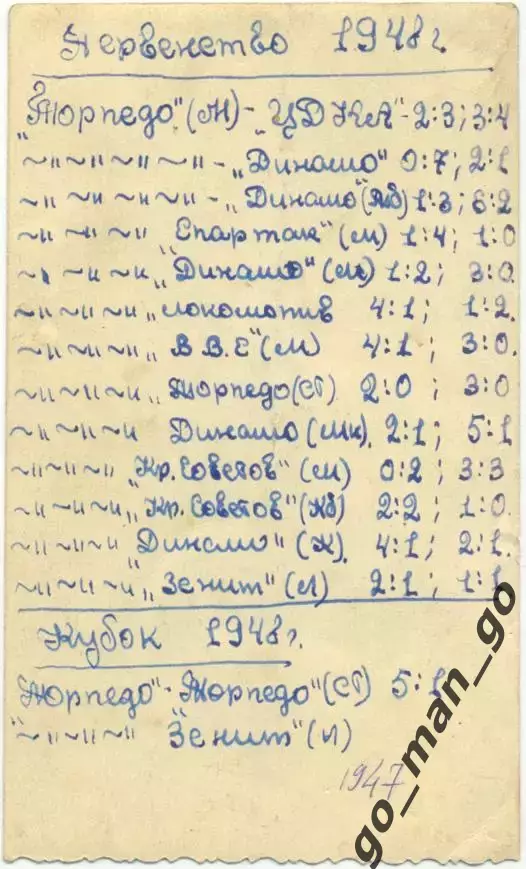 Первенство 1948 г.
"Торпедо" (М) - "ЦДКА" - 2:3; 3:4
~"~"~"~" - "Динамо" 0:7; 2:1
~"~"~"~" - "Динамо" (Лб) 1:3; 6:2
~"~"~" "Спартак" (М) 1:4; 1:0
~"~"~" "Динамо" (М) 1:2; 3:0
~"~"~" "Локомотив 4:1; 1:2
~"~"~" "В.В.С" (М) 4:1; 3:0.
~"~"~" "Торпедо (СТ) 2:0; 3:0
~"~"~" Динамо (Мк). 2:1; 5:1
~"~"~" "Кр. Советов" (М) 0:2; 3:3
~"~"~" "Кр. Советов" (Кб) 2:2; 1:0.
~"~"~" "Динамо" (К). 4:1; 2:1.
~"~"~" "Зенит" (Л) 2:1; 1:1
Кубок 1948 г.
"Торпедо" - "Торпедо" (СТ) 5:1
~"~"~" "Зенит" (Л)
1947
go_man_go